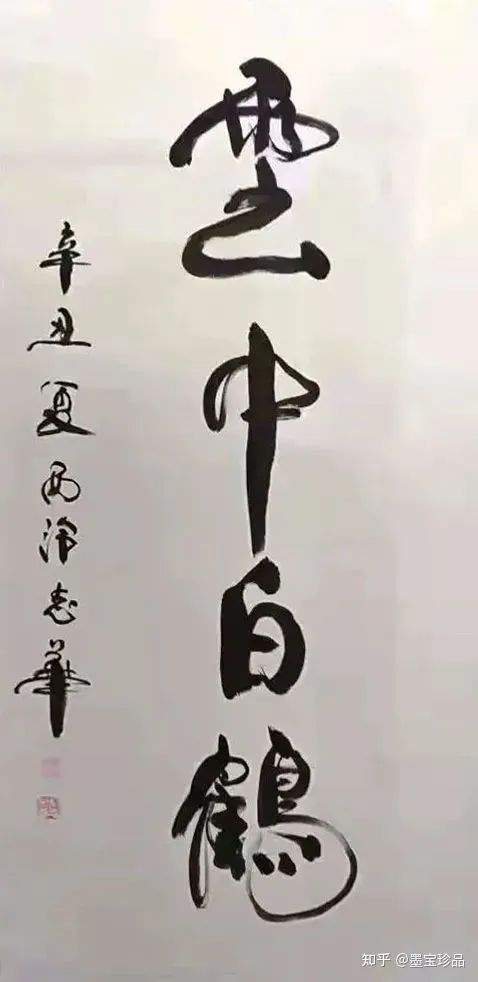 雲中白鶴
辛丑夏西泠志華
知乎 @墨宝珍品